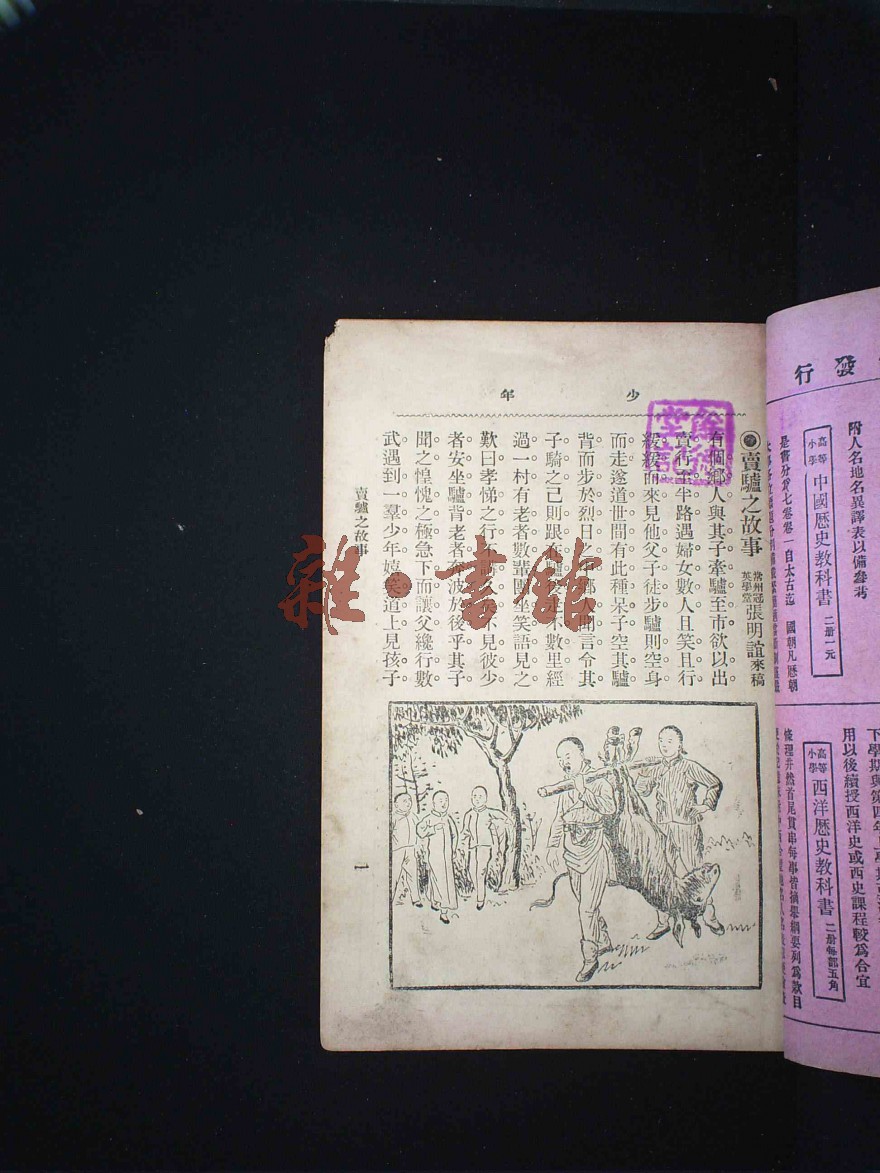 發行
附人名地名異譯表以備參考
高等小學 中國歷史教科書 二册一元
是書分爲七卷卷一自太古迄 國朝凡歷朝
下學期與第四年上學
用以後續授西洋史或西史課程較爲合宜
高等小學 西洋歷史教科書 二册每部五角
條理井然首尾貫串每事皆摘舉綱要列爲款目
少年
賣驢之故事 常州冠英學堂 張明誼 來稿
有個鄉人與其子牽驢至市欲以出
賣行至半路遇婦女數人且笑且行
緩緩而來見他父子徒步驢則空身
而走遂道世間有此種呆子空其驢
背而步於烈日之中鄉人聞言令其
子騎之己則跟在驢後走不數里經
過一村有老者數輩團坐笑語見之
歎曰孝悌之行不 矣不見彼少
者安坐驢背老者奔波於後乎其子
聞之惶愧之極急下而讓父纔行數
武遇到一羣少年嬉笑道上見孩子
賣驢之故事
一
雜·書館